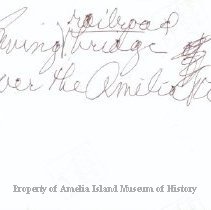 railroad
Swing bridge
over the Amelia Ri
Property of Amelia Island Museum of History